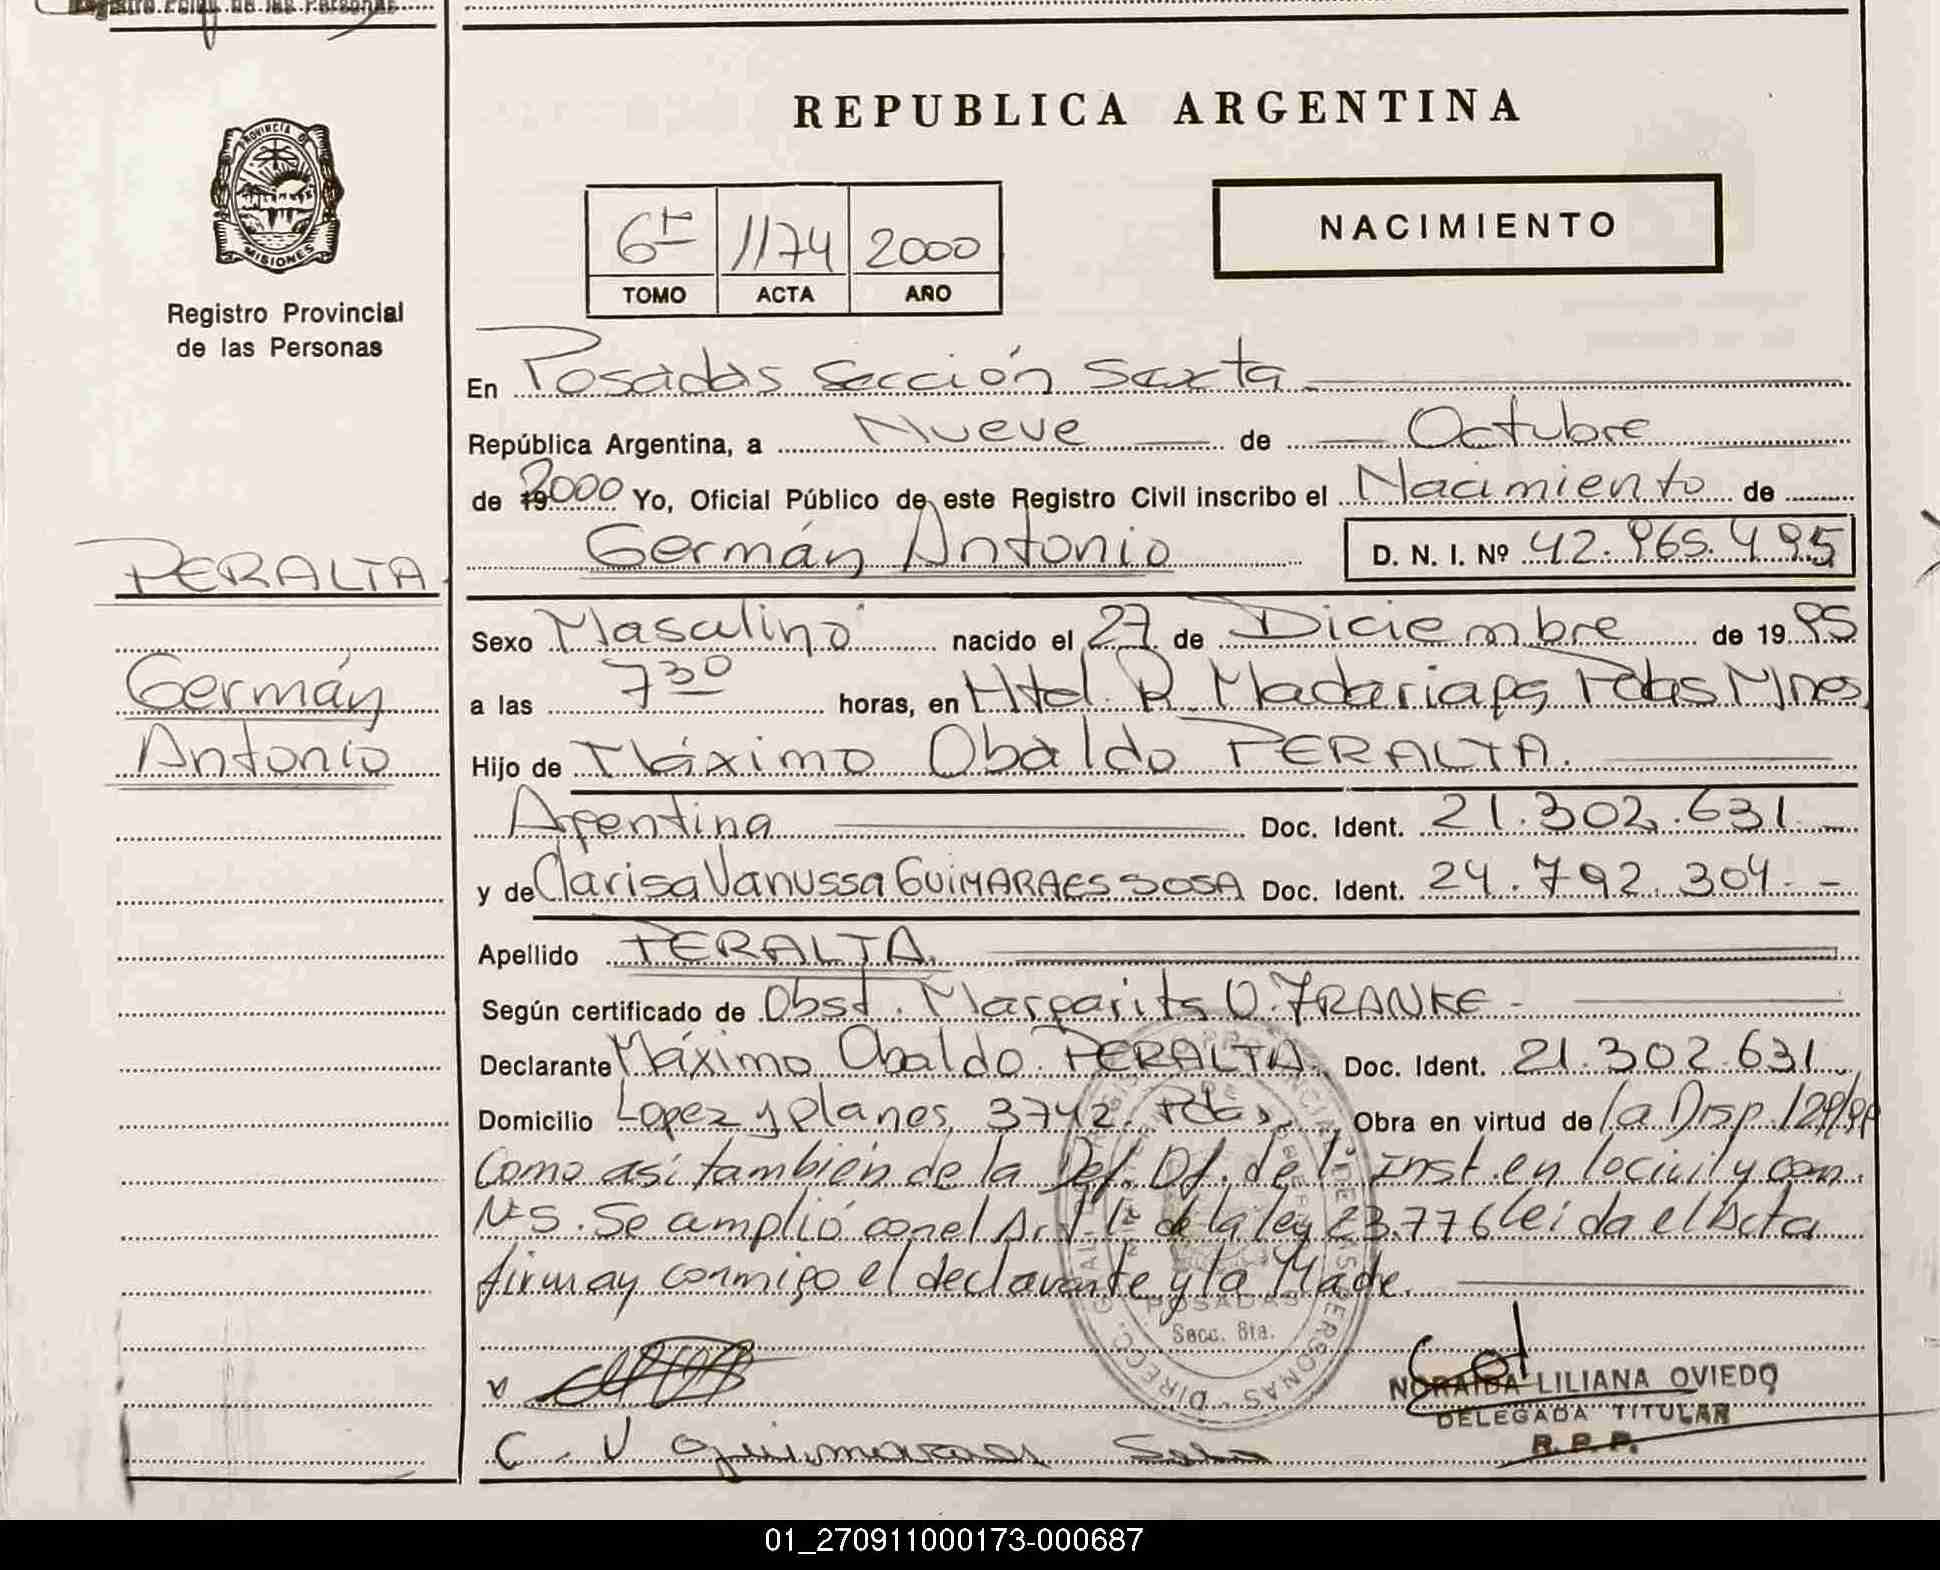 Registro Prov. de las Personas
REPUBLICA ARGENTINA
PROVINCIA DE
MISIONES
Registro Provincial
de las Personas
NACIMIENTO
6ta 1174 2000
TOMO ACTA AÑO
En Posadas Sección Sexta
República Argentina, a Nueve de Octubre
de 2000 Yo, Oficial Público de este Registro Civil inscribo el Nacimiento de
Germán Antonio D. N. I. Nº 42.965.495
PERALTA
Germán
Antonio
Sexo Masculino nacido el 27 de Diciembre de 1995
a las 7 30 horas, en Htal. R. Madariaga, Pdas Mnes
Hijo de Máximo Obaldo PERALTA.
Argentina Doc. Ident. 21.302.631
y de Clarisa Vanussa GUIMARAES SOSA Doc. Ident. 24.792.304
Apellido PERALTA
Según certificado de Obst. Margarita O. FRANKE
Declarante Máximo Obaldo PERALTA Doc. Ident. 21.302.631
Domicilio Lopez y planes 3742 Pdas, Obra en virtud de la Disp.
Como asi también de la Def. Of. de 1º inst. en lo civil y com.
Nº5. Se amplió con el Art 1º de la ley 23.776 leida el Acta
firmay conmigo el declarante y la Made.
POSADAS
Secc. 6ta.
C. V Guimaraes Sosa
NORAIDA LILIANA OVIEDO
DELEGADA TITULAR
R. P. P.
01_270911000173-000687